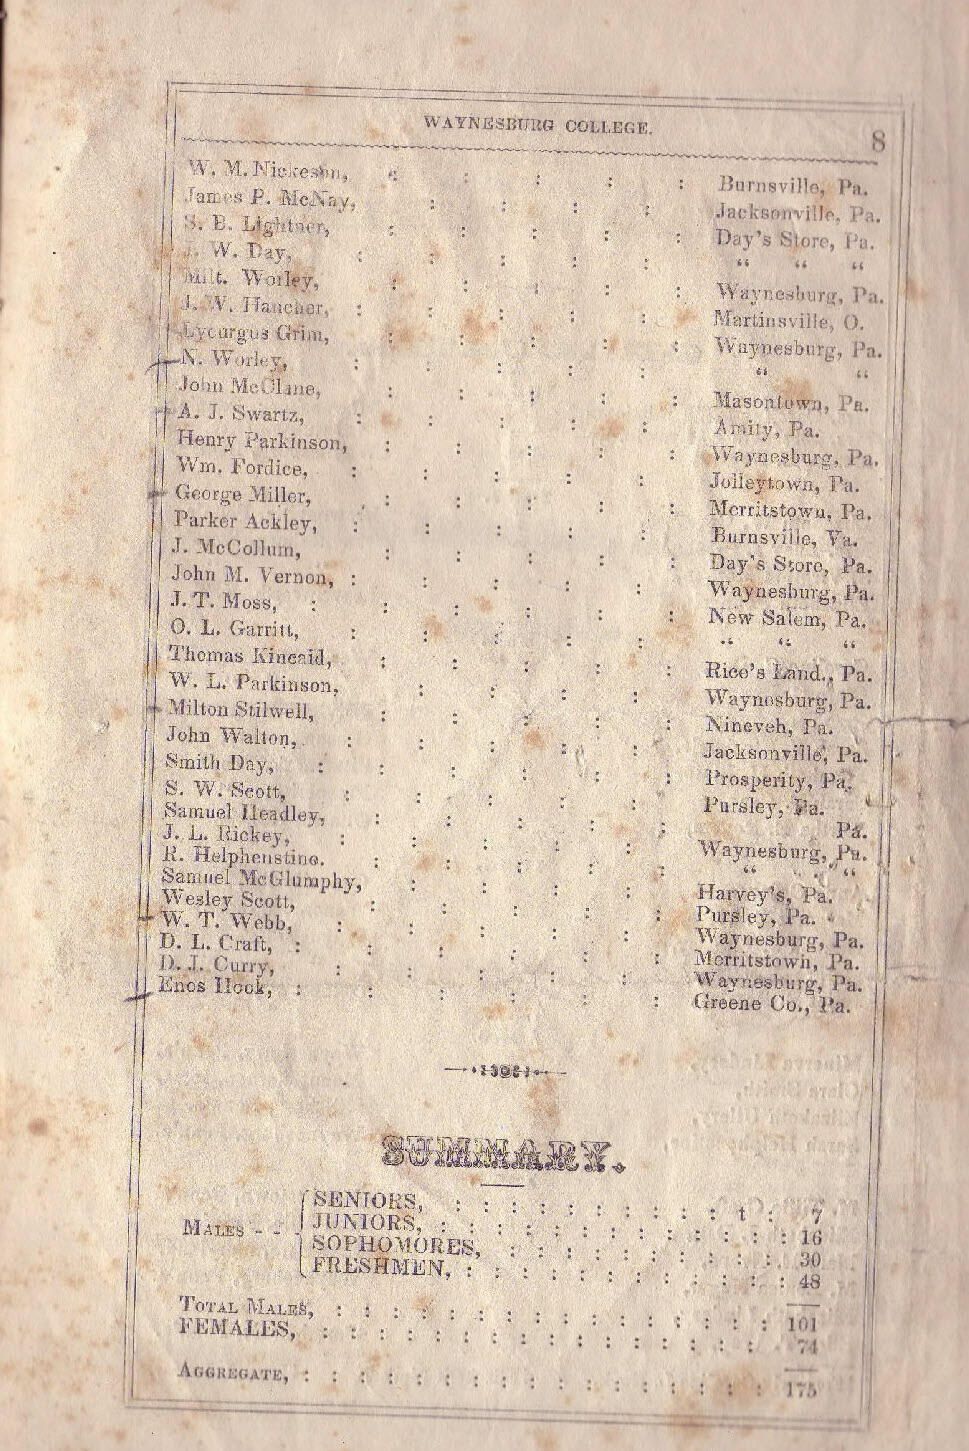 WAYNESBURG COLLEGE. 8
W. M. Nickeson, : : : : : Burnsville, Pa.
James P. McNay, : : : : Jacksonville, Pa.
S. B. Lightner, : : : : : Day's Store, Pa.
J. W. Day, : : : : : “ “ “
Milt. Worley, : : : : : Waynesburg, Pa.
J. W. Hancher, : : : : : Martinsville, O.
Lycurgus Grim, : : : : : Waynesburg, Pa.
N. Worley, : : : : : “ “
John McClane, : : : : : Masontown, Pa.
A. J. Swartz, : : : : : Amity, Pa.
Henry Parkinson, : : : : : Waynesburg, Pa.
Wm. Fordice, : : : : : Jolleytown, Pa.
George Miller, : : : : : Merritstown, Pa.
Parker Ackley, : : : : : Burnsville, Va.
J. McCollum, : : : : : Day's Store, Pa.
John M. Vernon, : : : : : Waynesburg, Pa.
J. T. Moss, : : : : : : New Salem, Pa.
O. L. Garritt, : : : : : “ “ “
Thomas Kincaid, : : : : : Rice's Land., Pa.
W. L. Parkinson, : : : : Waynesburg, Pa.
Milton Stilwell, : : : : : Nineveh, Pa.
John Walton, : : : : : Jacksonville, Pa.
Smith Day, : : : : : : Prosperity, Pa.
S. W. Scott, : : : : : Pursley, Pa.
Samuel Headley, : : : : : Pa.
J. L. Rickey, : : : : : Waynesburg, Pa.
R. Helphenstine. : : : : : “ “
Samuel McGlumphy, : : : : Harvey's, Pa.
Wesley Scott, : : : : : Pursley, Pa.
W. T. Webb, : : : : : Waynesburg, Pa.
D. L. Craft, : : : : : : Merritstown, Pa.
D. J. Curry, : : : : : Waynesburg, Pa.
Enos Hook, : : : : : : Greene Co., Pa.
SUMMARY.
SENIORS, : : : : : : : : : : t : 7
JUNIORS, : : : : : : : : : : : : : 16
MALES - - -
SOPHOMORES, : : : : : : : : : : 30
FRESHMEN, : : : : : : : : : : : : 48
TOTAL MALES, : : : : : : : : : : : : : : : : 101
FEMALES, : : : : : : : : : : : : : : : : 74
AGGREGATE, : : : : : : : : : : : : : : : : : 175